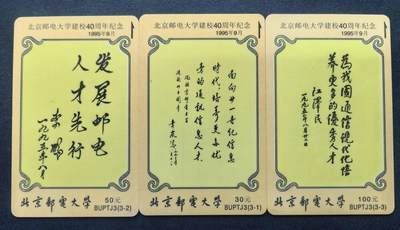 北京邮电大学建校40周年纪念
1995年9月
发展邮电
人才先行
李鹏
一九九五年八月
北京邮电大学
50元
BUPTJ3(3-2)
北京邮电大学建校40周年纪念
1995年9月
面向廿一世纪信息
时代，培养更多优
秀的通讯信息人才
北京邮电大学
30元
BUPTJ3(3-1)
北京邮电大学建校40周年纪念
1995年9月
为我国通信现代化培
养更多的优秀人才
江泽民
一九九五年八月廿日
北京邮电大学
100元
BUPTJ3(3-3)